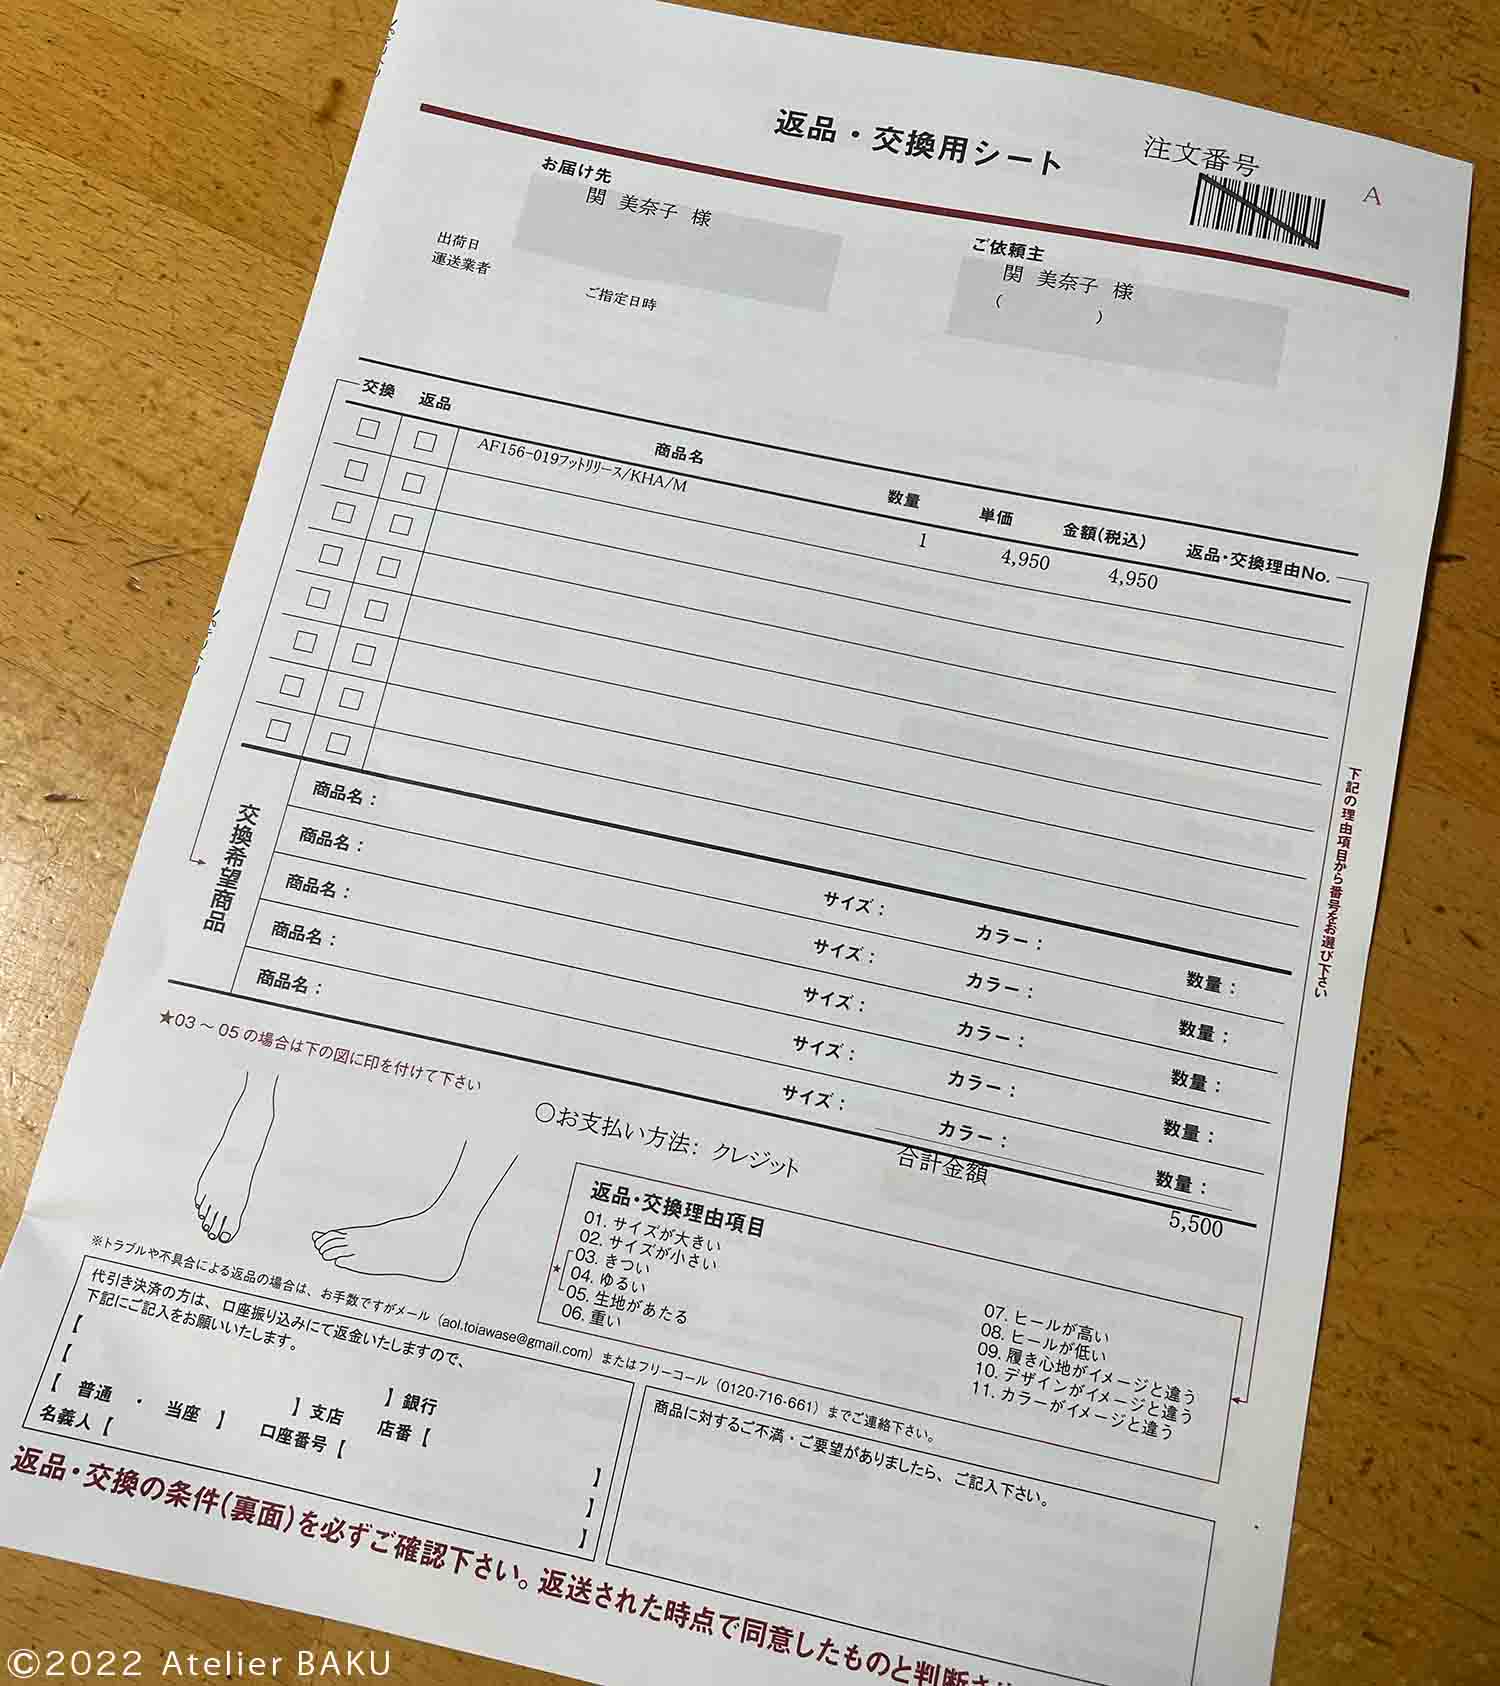 返品・交換用シート
注文番号
A
お届け先
関 美奈子 様
ご依頼主
関 美奈子 様
( )
出荷日
運送業者
ご指定日時
交換 返品 商品名 数量 単価 金額(税込) 返品・交換理由No.
AF156-019フットリリース/KHA/M 1 4,950 4,950
下記の理由項目から番号をお選び下さい
交換希望商品
商品名： サイズ： カラー： 数量：
商品名： サイズ： カラー： 数量：
商品名： サイズ： カラー： 数量：
商品名： サイズ： カラー： 数量：
商品名： サイズ： カラー： 数量：
★03～05の場合は下の図に印を付けて下さい
〇お支払い方法：クレジット
合計金額
5,500
返品・交換理由項目
01. サイズが大きい
02. サイズが小さい
★
03. きつい
04. ゆるい
05. 生地があたる
06. 重い
07. ヒールが高い
08. ヒールが低い
09. 履き心地がイメージと違う
10. デザインがイメージと違う
11. カラーがイメージと違う
※トラブルや不具合による返品の場合は、お手数ですがメール（aol.toiawase@gmail.com）またはフリーコール（0120-716-661）までご連絡下さい。
代引き決済の方は、口座振り込みにて返金いたしますので、
下記にご記入をお願いいたします。
【 】銀行
【 】支店 店番【 】
【 普通 ・ 当座 】 口座番号【 】
名義人【 】
商品に対するご不満・ご要望がありましたら、ご記入下さい。
返品・交換の条件(裏面)を必ずご確認下さい。返送された時点で同意したものと判断さ
©2022 Atelier BAKU